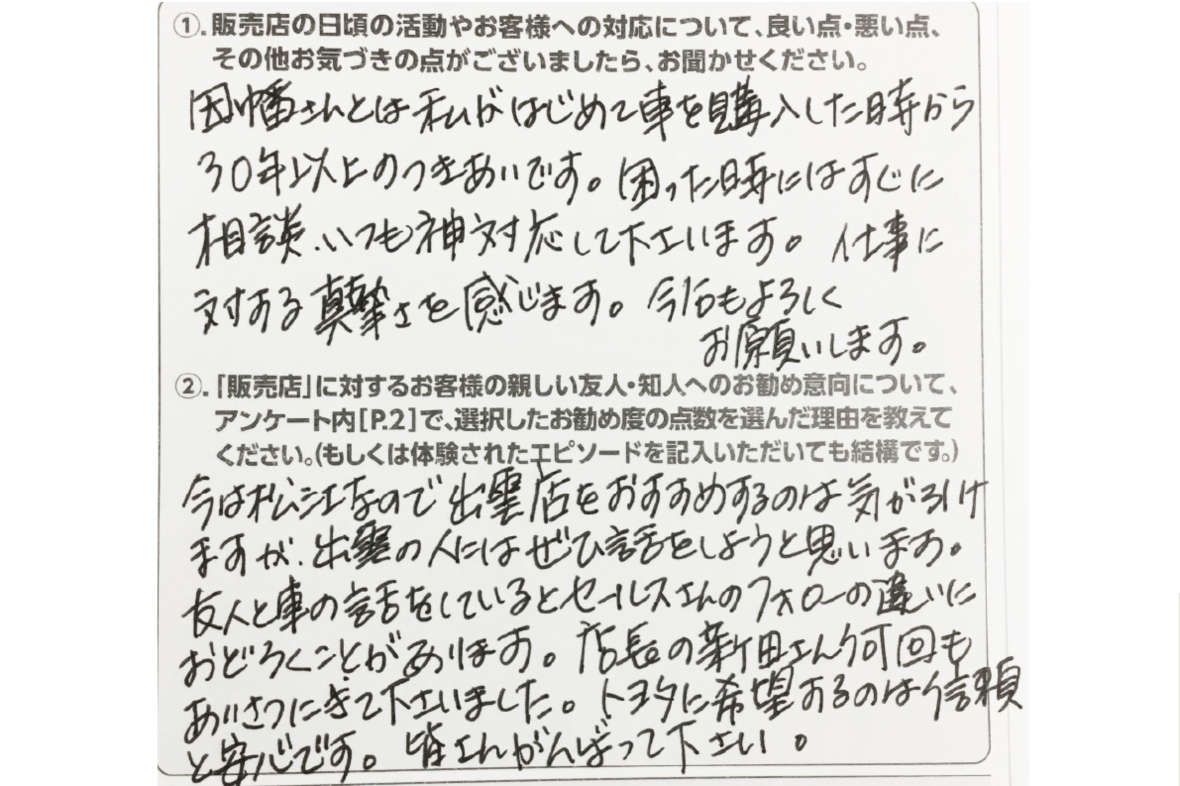 ①.販売店の日頃の活動やお客様への対応について、良い点・悪い点、
その他お気づきの点がございましたら、お聞かせください。
因幡さんとは私がはじめて車を購入した時から
30年以上のつきあいです。困った時にはすぐに
相談、いつも神対応して下さいます。仕事に
対する真摯さを感じます。今后もよろしく
お願いします。
②.「販売店」に対するお客様の親しい友人・知人へのお勧め意向について、
アンケート内[P.2]で、選択したお勧め度の点数を選んだ理由を教えて
ください。(もしくは体験されたエピソードを記入いただいても結構です。)
今は松江なので出雲店をおすすめするのは気が引け
ますが、出雲の人にはぜひ話をしようと思います。
友人と車の話をしているとセールスさんのフォローの違いに
おどろくことがあります。店長の新田さん何回も
あいさつにきて下さいました。トヨタに希望するのは信頼
と安心です。皆さんがんばって下さい。